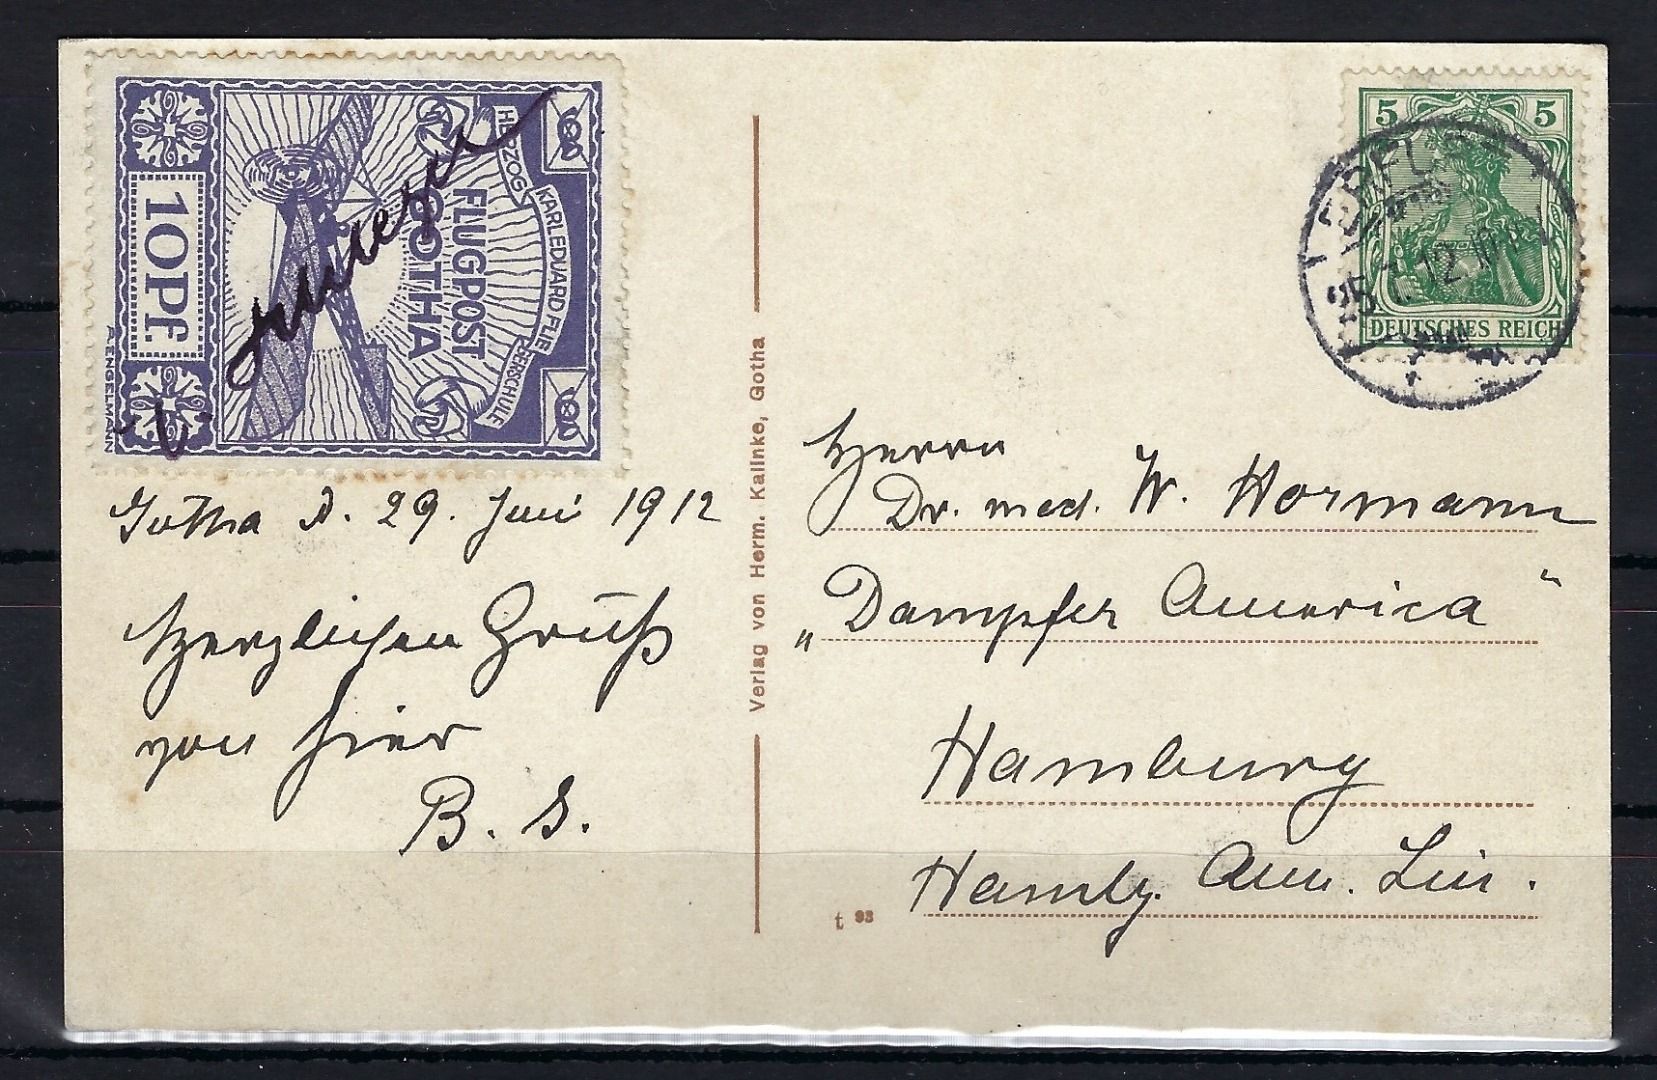 10 Pf.
FLUGPOST
GOTHA
HERZOG KARL EDUARD FLIEGERSCHULE
A. ENGELMANN
5 5
DEUTSCHES REICH
25. 12
Gotha d. 29. Juni 1912
Herzlichen Gruß
von hier
B. S.
Verlag von Herm. Kalinke, Gotha
Herrn
Dr. med. W. Hormann
„Dampfer America"
Hamburg
Hambg. Am. Lin.
t 93